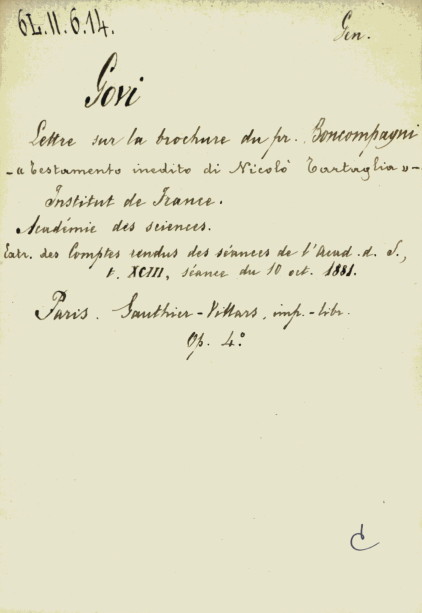 6L.11.6.14.
Gen.
Govi
Lettre sur la brochure du pr. Boncompagni
-« Testamento inedito di Nicolò Tartaglia »-
Institut de France.
Académie des sciences.
Extr. des Comptes rendus des séances de l'Acad. d. S.,
t. XCIII, séance du 10 oct. 1881.
Paris. Gauthier-Villars, imp.-libr.
Op. 4°